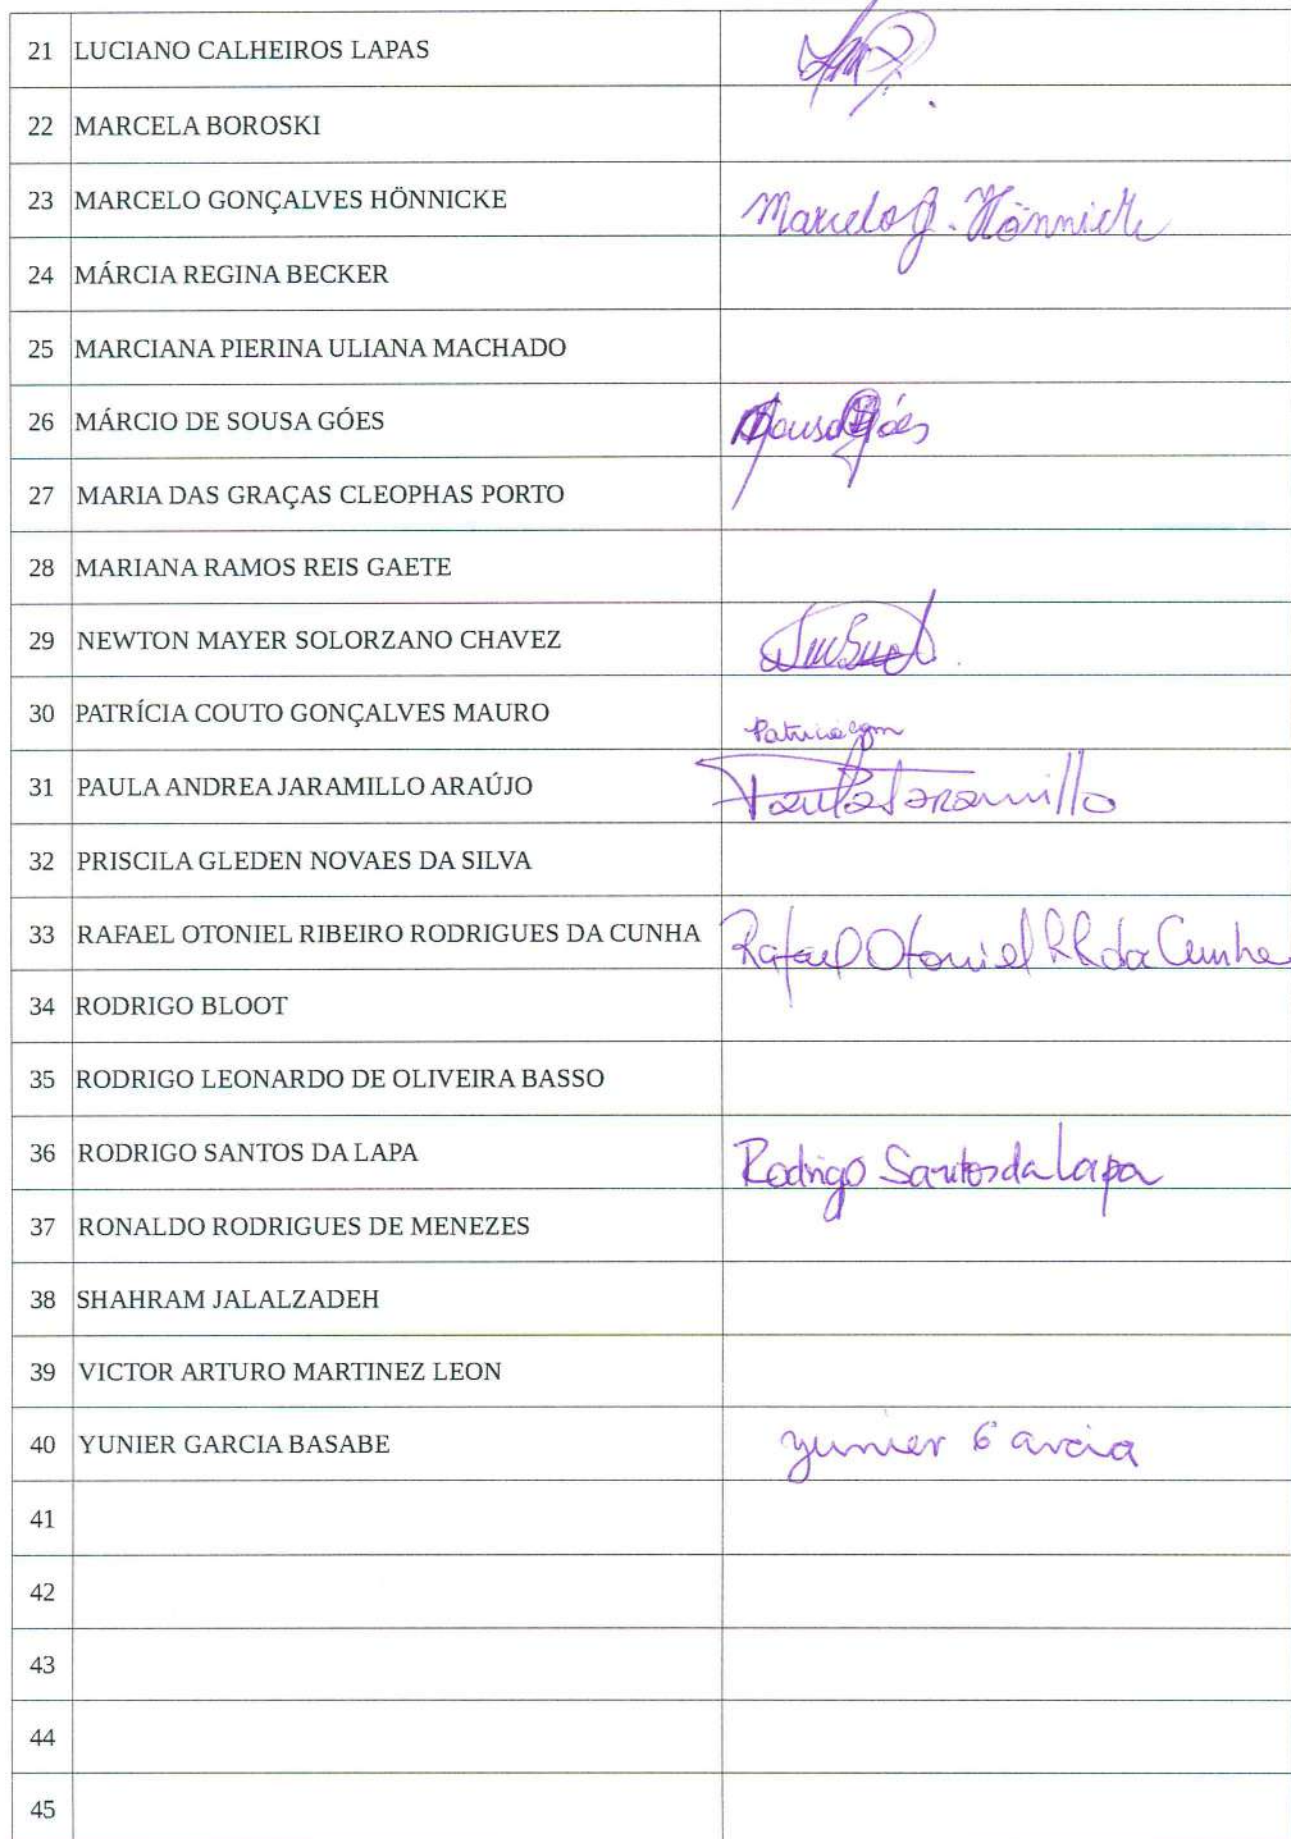 21 LUCIANO CALHEIROS LAPAS
22 MARCELA BOROSKI
23 MARCELO GONÇALVES HÖNNICKE Marcelo G. Hönnicke
24 MÁRCIA REGINA BECKER
25 MARCIANA PIERINA ULIANA MACHADO
26 MÁRCIO DE SOUSA GÓES Sousa Góes
27 MARIA DAS GRAÇAS CLEOPHAS PORTO
28 MARIANA RAMOS REIS GAETE
29 NEWTON MAYER SOLORZANO CHAVEZ
30 PATRÍCIA COUTO GONÇALVES MAURO Patriciacgm
31 PAULA ANDREA JARAMILLO ARAÚJO Paula Jaramillo
32 PRISCILA GLEDEN NOVAES DA SILVA
33 RAFAEL OTONIEL RIBEIRO RODRIGUES DA CUNHA Rafael Otoniel RR da Cunha
34 RODRIGO BLOOT
35 RODRIGO LEONARDO DE OLIVEIRA BASSO
36 RODRIGO SANTOS DA LAPA Rodrigo Santos da Lapa
37 RONALDO RODRIGUES DE MENEZES
38 SHAHRAM JALALZADEH
39 VICTOR ARTURO MARTINEZ LEON
40 YUNIER GARCIA BASABE yunier Garcia
41
42
43
44
45